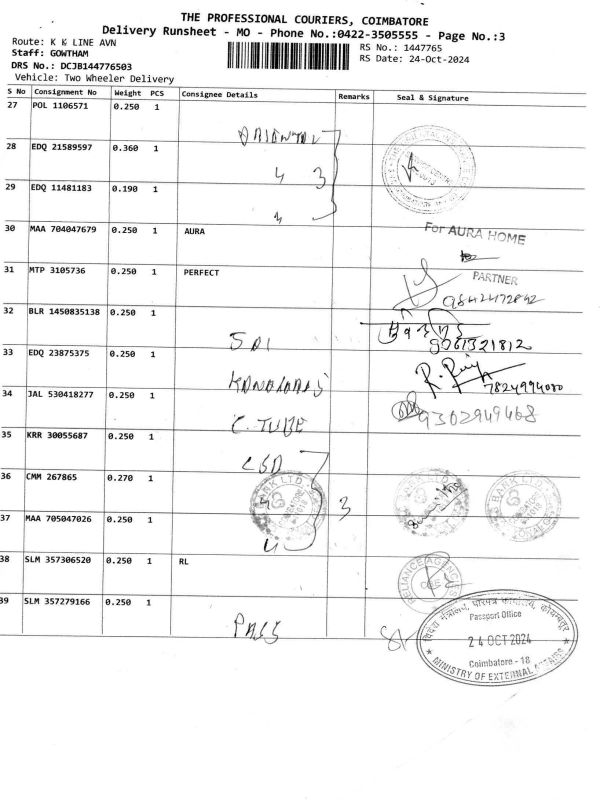 THE PROFESSIONAL COURIERS, COIMBATORE
Delivery Runsheet - MO - Phone No.:0422-3505555 - Page No.:3
Route: K K LINE AVN
Staff: GOWTHAM
DRS No.: DCJB144776503
Vehicle: Two Wheeler Delivery
RS No.: 1447765
RS Date: 24-Oct-2024
S No Consignment No Weight PCS Consignee Details Remarks Seal & Signature
27 POL 1106571 0.250 1
28 EDQ 21589597 0.360 1
3
29 EDQ 11481183 0.190 1
30 MAA 704047679 0.250 1 AURA
For AURA HOME
PARTNER
31 MTP 3105736 0.250 1 PERFECT
9842472842
32 BLR 1450835138 0.250 1
SRI
9061321812
33 EDQ 23875375 0.250 1
R. Raj
7824994080
34 JAL 530418277 0.250 1
C. TUBE
9302949468
35 KRR 30055687 0.250 1
36 CMM 267865 0.270 1
3
BANK LTD
37 MAA 705047026 0.250 1
38 SLM 357306520 0.250 1 RL
RELIANCE AGENCIES
CBE
39 SLM 357279166 0.250 1
PASS
Passport Office
24 OCT 2024
Coimbatore - 18
MINISTRY OF EXTERNAL AFFAIRS